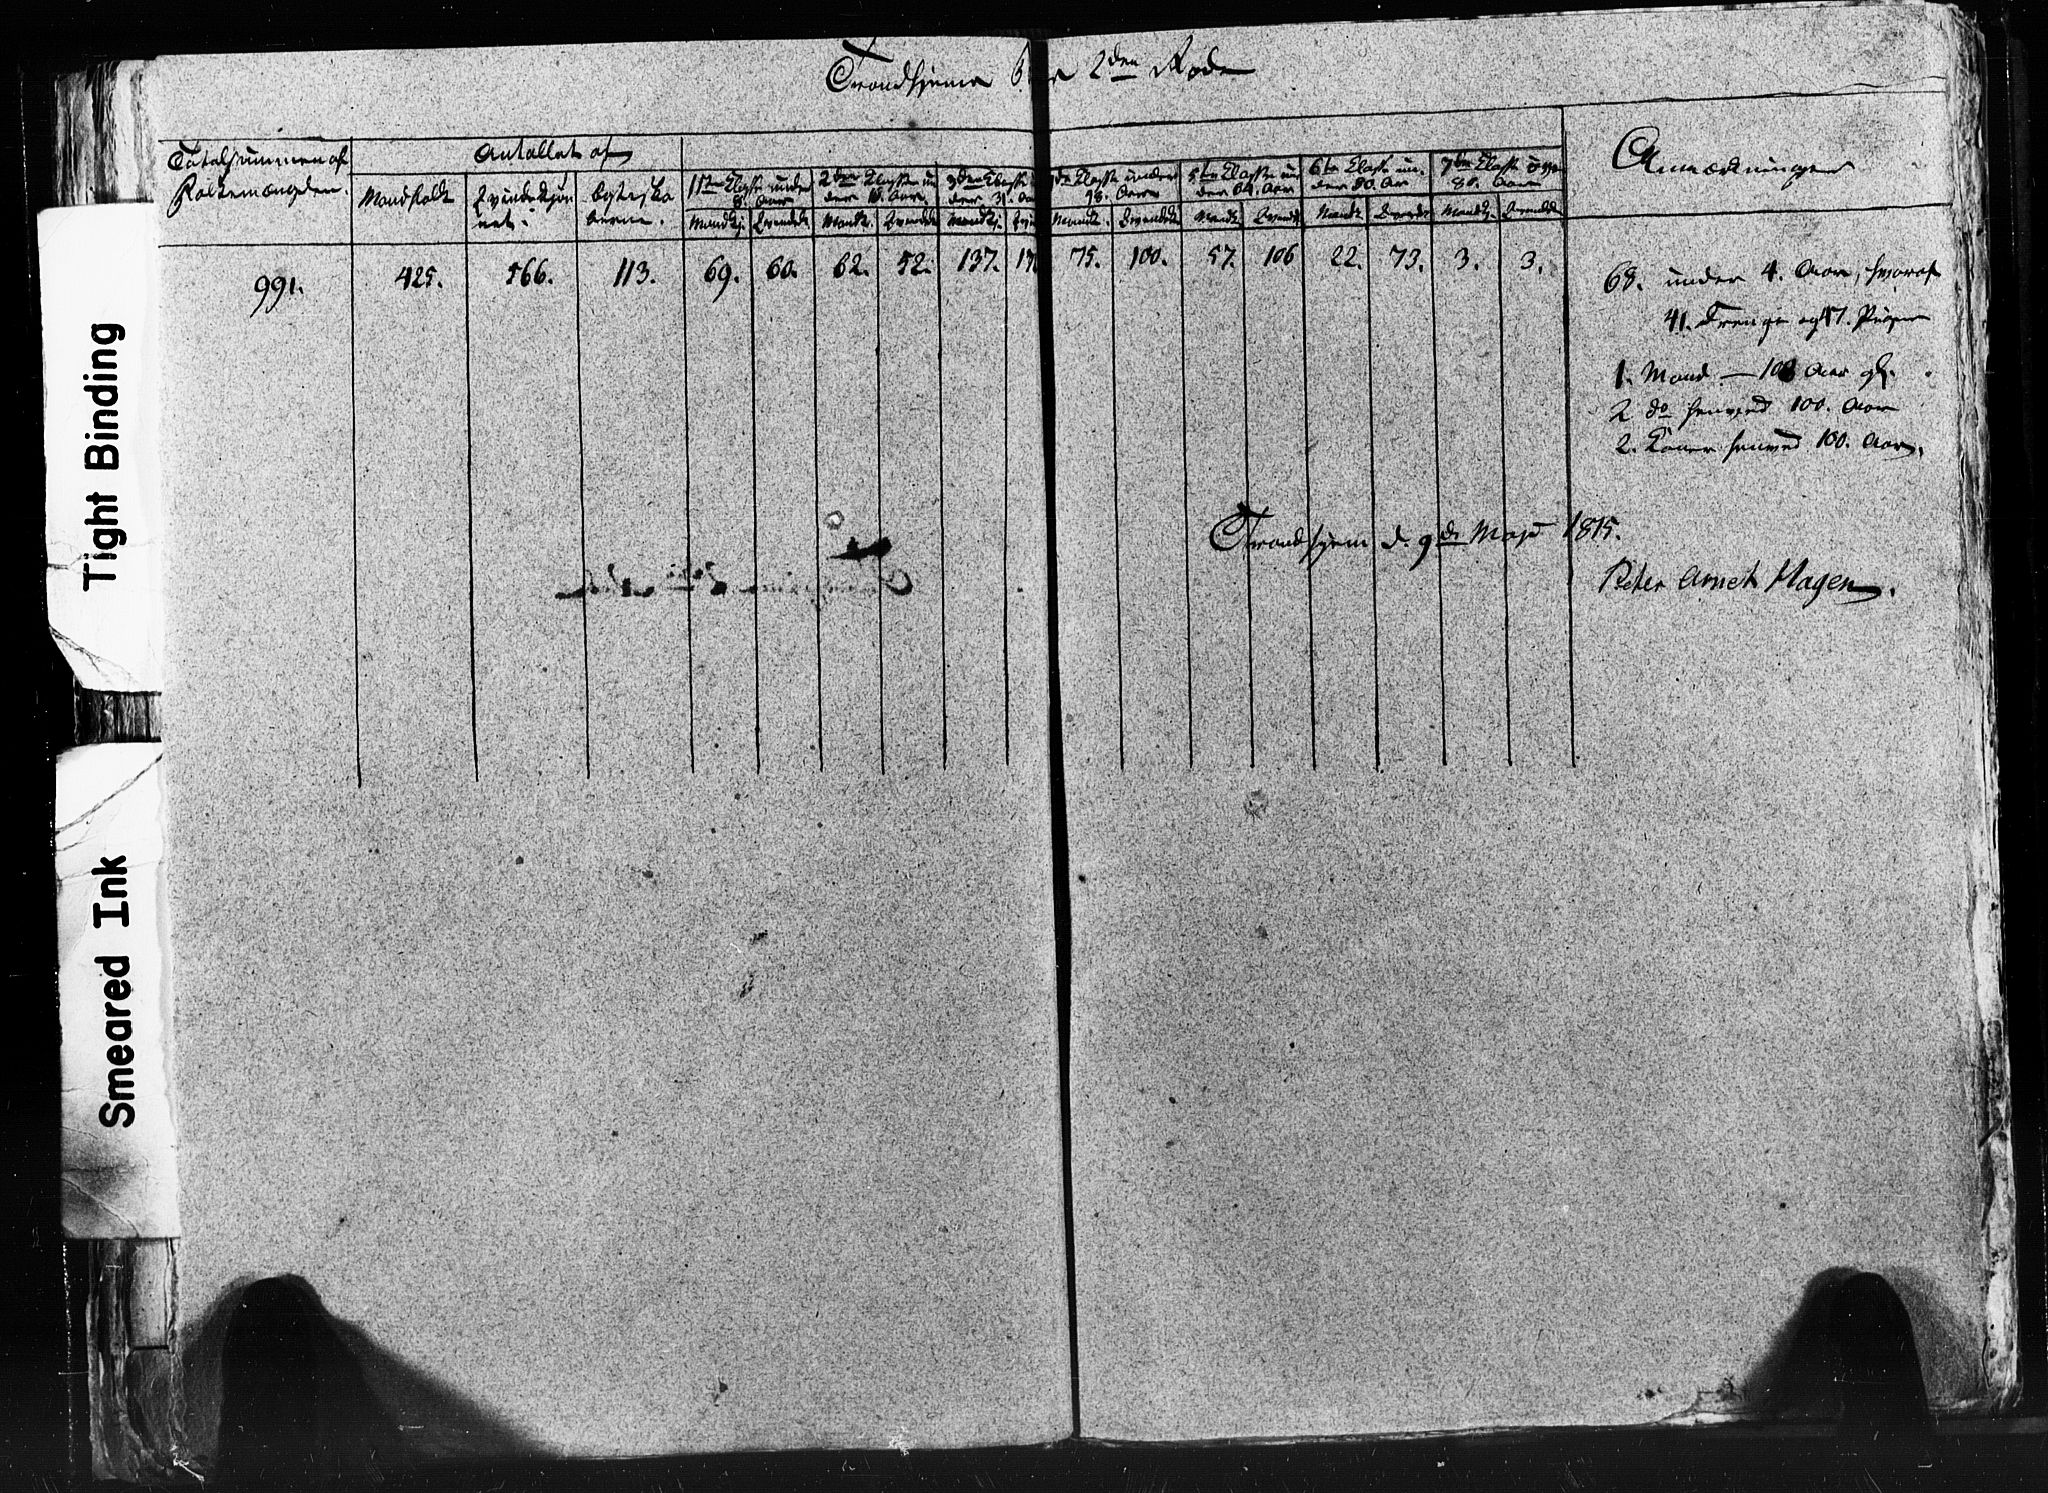 Trondhjems 2den Rode
Totalsummen af Folkemængden.
Antallet af
Mandfolk
Qvindekjønnet.
Ægteskaberne.
1ste Classe under 8. Aar
2den Classe under 16. Aar.
3den Classe under 31. Aar
Classe under 48. Aar
5te Classe under 64. Aar
6te Classe under 80. Aar
7de Classe over 80. Aar
Mandkj. Qvindek. Mandk. Qvindek. Mandkj. Mandk. Qvindek. Mandk. Qvindek. Mandk. Qvindek. Mandkj. Qvindek.
991. 425. 566. 113. 69. 60. 62. 52. 137. 75. 100. 57. 106 22. 73. 3. 3.
Anmærkninger
68. under 4. Aar, hvoraf
41. Drenge og Piger
1. Mand — Aar gl.
2 do henved 100. Aar
2. Koner henved 100. Aar.
Trondhjem d. 9de Maju 1815.
Peter Arnet Hagen.
Tight Binding
Smeared Ink